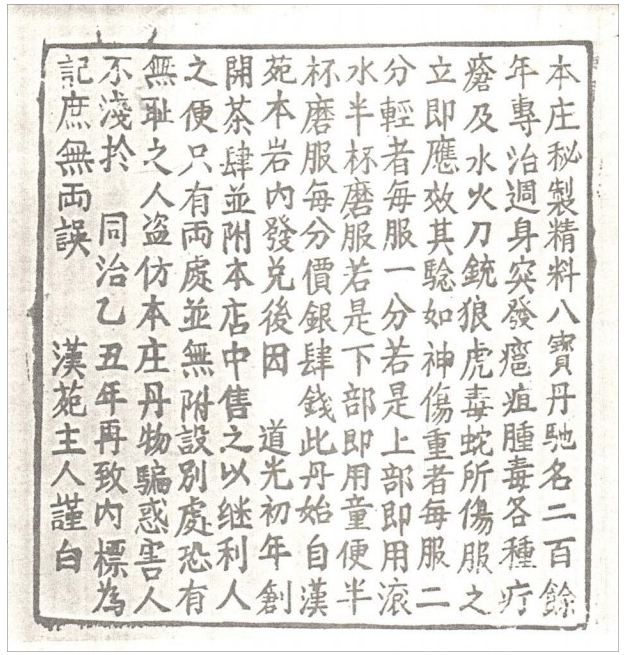 本庄秘製精料八寶丹馳名二百餘
年專治週身突發瘟疽腫毒各種疔
瘡及水火刀銃狼虎毒蛇所傷服之
立即應效其騐如神傷重者每服二
分輕者每服一分若是上部即用滚
水半杯磨服若是下部即用童便半
杯磨服每分價銀肆錢此丹始自漢
苑本岩内發兑後因 道光初年創
開茶肆並附本店中售之以继利人
之便只有両處並無附設別處恐有
無耻之人盗仿本庄丹物騙惑害人
不淺扵 同治乙丑年再致内標為
記庶無両誤 漢苑主人謹白